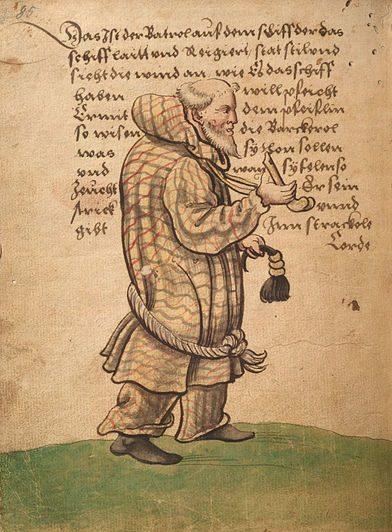 85
Das Ist der Patrol auf dem schiff der das
schiff laitt und Regiert stat stil und
sicht die wind an wie Es das schiff
haben will pfeicht
Er mit dem pfeiflin
so wisen die Barckerol
was sy thon sollen
und wan sy felen so
Zeucht Er sein
strick und
gibt Inn strackole
Corde